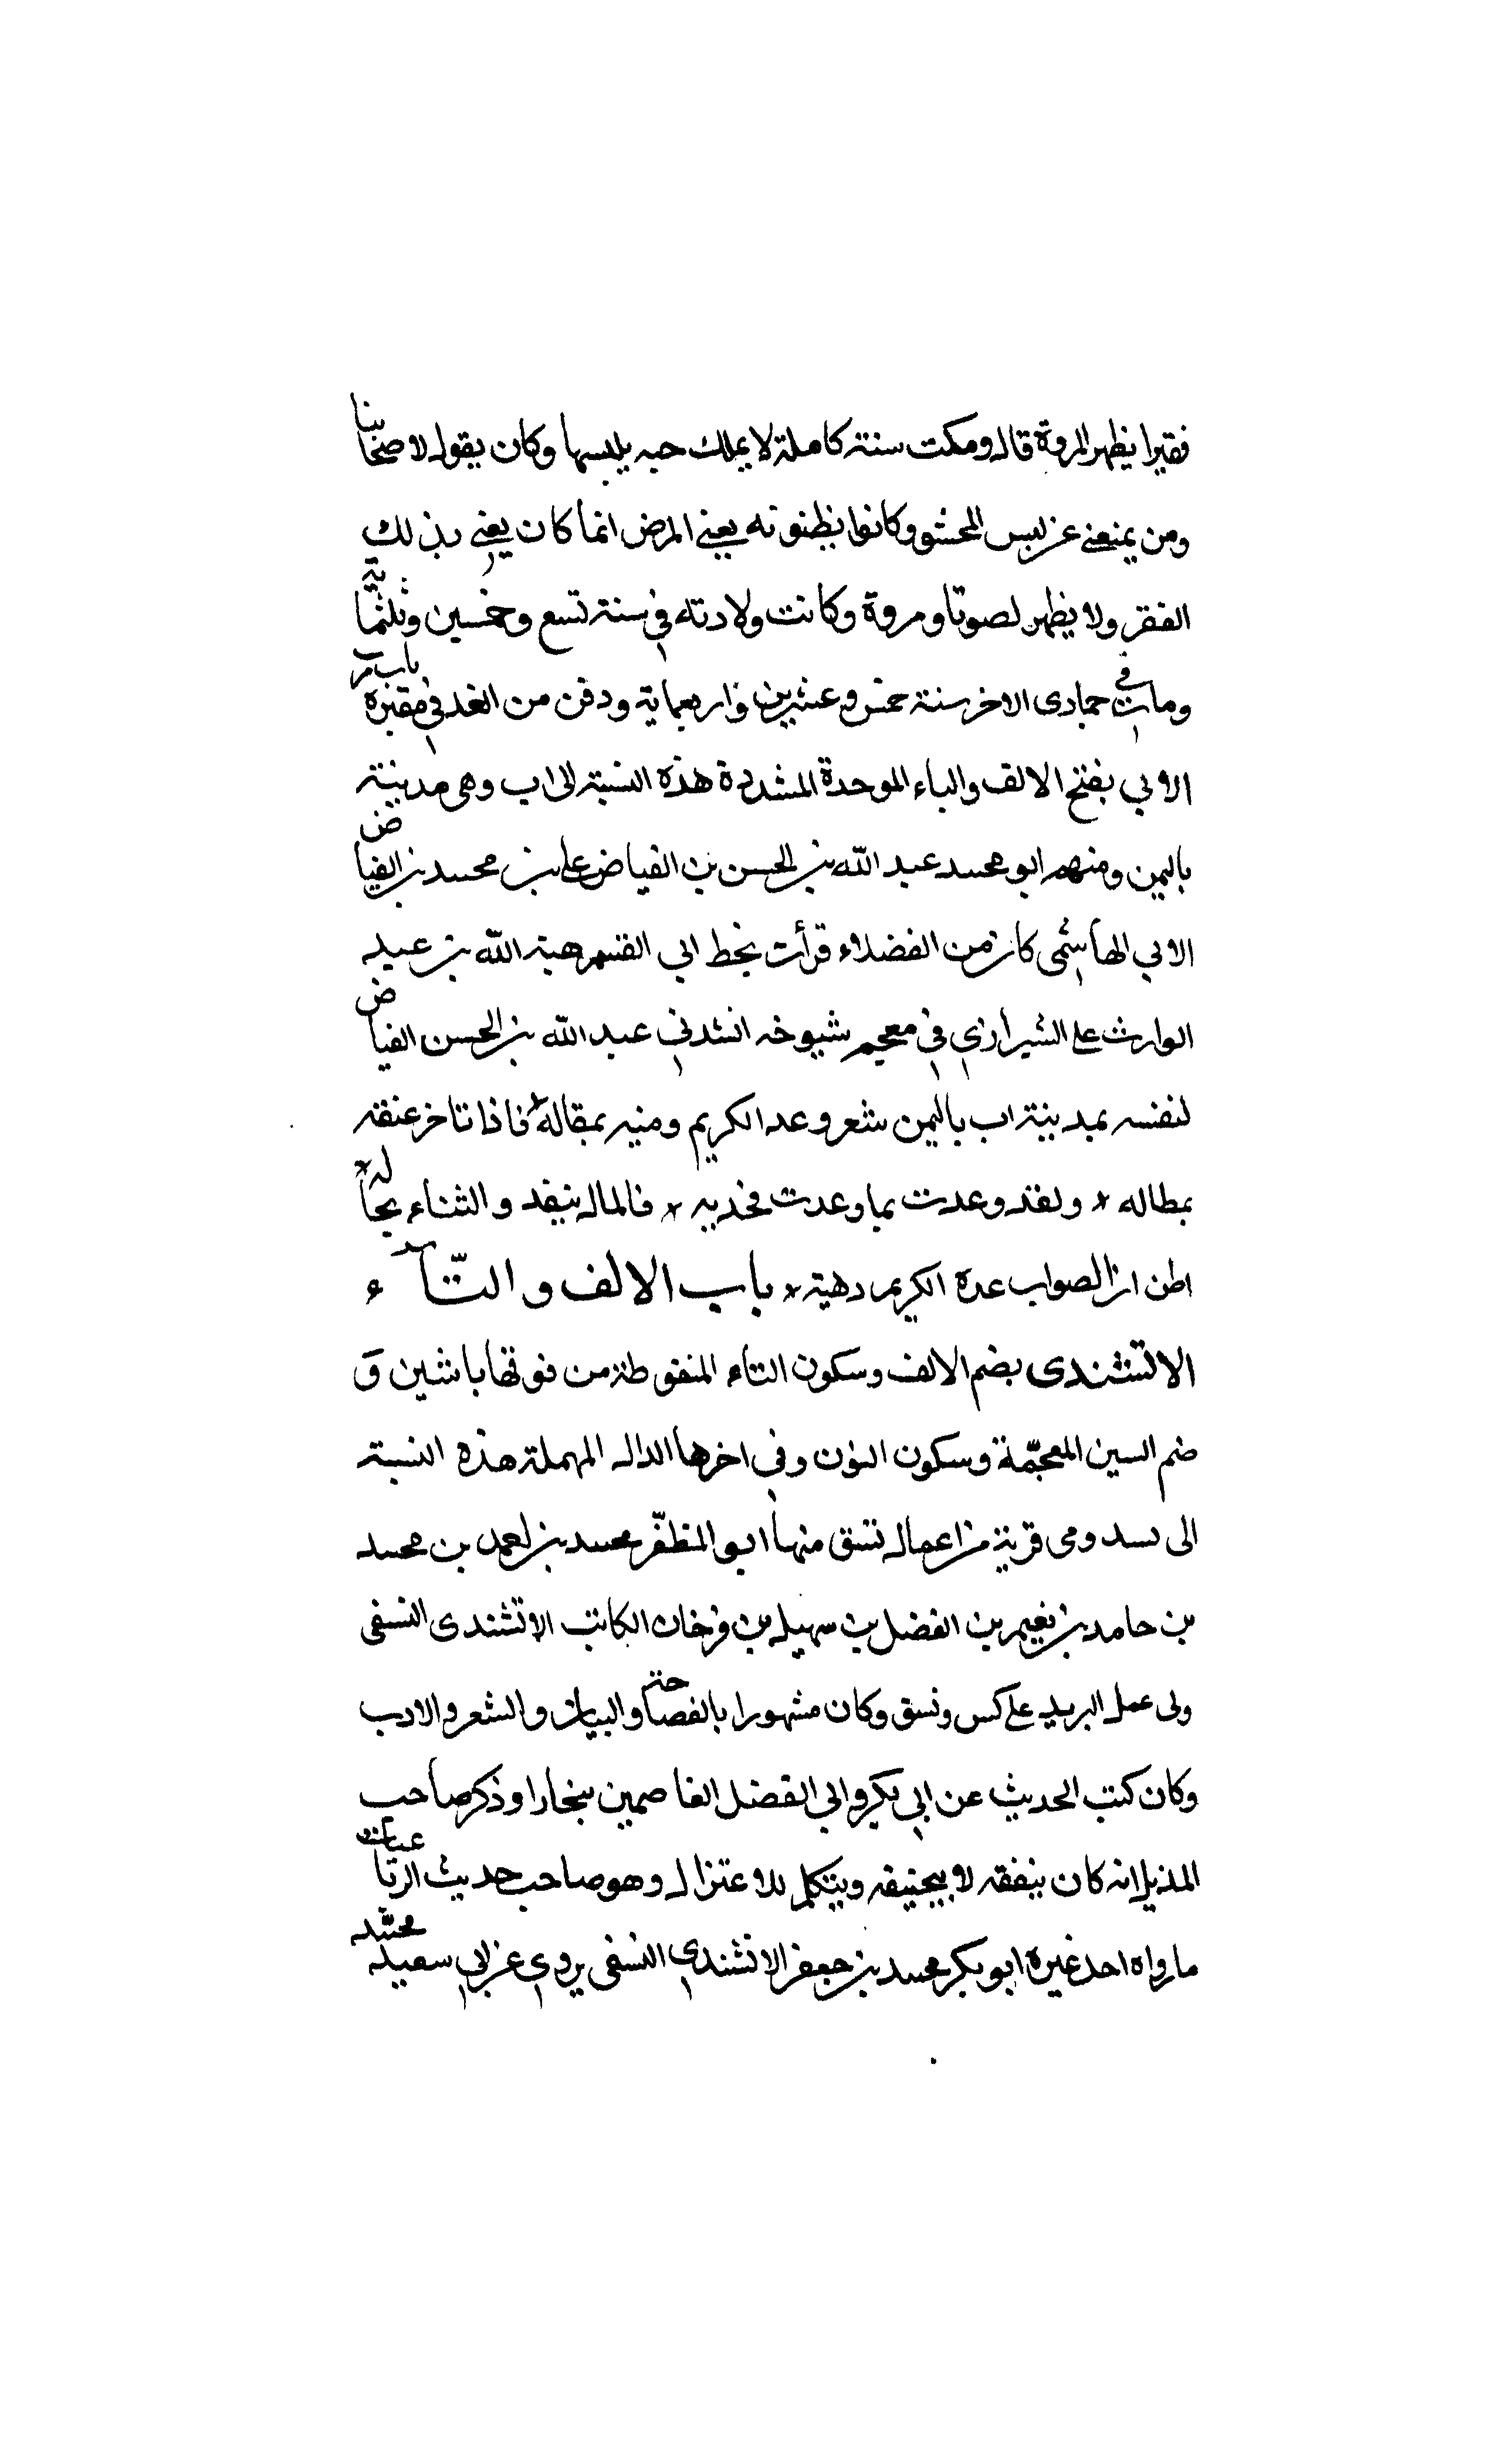 فقيرا يظهر المروة قال ومكث سنة كاملة لا يملك جبه يلبسها وكان يقول لاصحابنا
ومن يمنعني عن لبس المحشو وكانوا يظنونه يعني المرض انما كان يعني بذلك
الفقر ولا يظهر لصوتا ومروة وكانت ولادته في سنة تسع وخمسين وثلثماية
ومات في جمادى الاخر سنة خمس وعشرين واربعماية ودفن من الغد في مقبرة باب
الابي بفتح الالف والباء الموحدة المشددة هذه النسبة الى اب وهى مدينة
باليمن ومنهم ابو محمد عبد الله بن الحسن بن الفياض على بن محمد بن الفياض
الابي الهاشمى كان من الفضلاء قرأت بخط ابي القسم هبة الله بن عبد
الوارث على الشيرازي في معجم شيوخه انشدني عبد الله بن الحسن الفياض
لنفسه بمدينة اب باليمن شعر وعد الكريم ومنيه بمقاله فاذا تاخر عنقه
بمطاله ولقد وعدت بما وعدت فخديه فالمال ينفد والثناء بحاله
اظن ان الصواب عدة الكريم دهية باب الالف والتّاء
الاتشندى بضم الالف وسكون التاء المنقوطة من فوقها باشين و
ضم السين المعجّمة وسكون النون وفي اخرها الدال المهملة هذه النسبة
الى ومى قرية من اعمال نسق منها ابو المظفّر محمد بن احمد بن محمد
بن حامد بن نعيم بن الفضل بن سهيل بن فرخان الكاتب الاتشندى النسفى
ولى عمل البريد على كس ونسق وكان مشهورا بالفصاحة والبيان والشعر والادب
وكان كتب الحديث عن ابي بكر وابي الفضل الفاصمين ببخارا وذكر صاحب
المذيل انه كان يتفقه لابيحنيفه ويتكلم للاعتزال وهو صاحب حديث الرتا
ما رواه احد غيره ابو بكر محمد بن جعفر الاتشندي النسفى يروي عن ابي سعيد محمّد